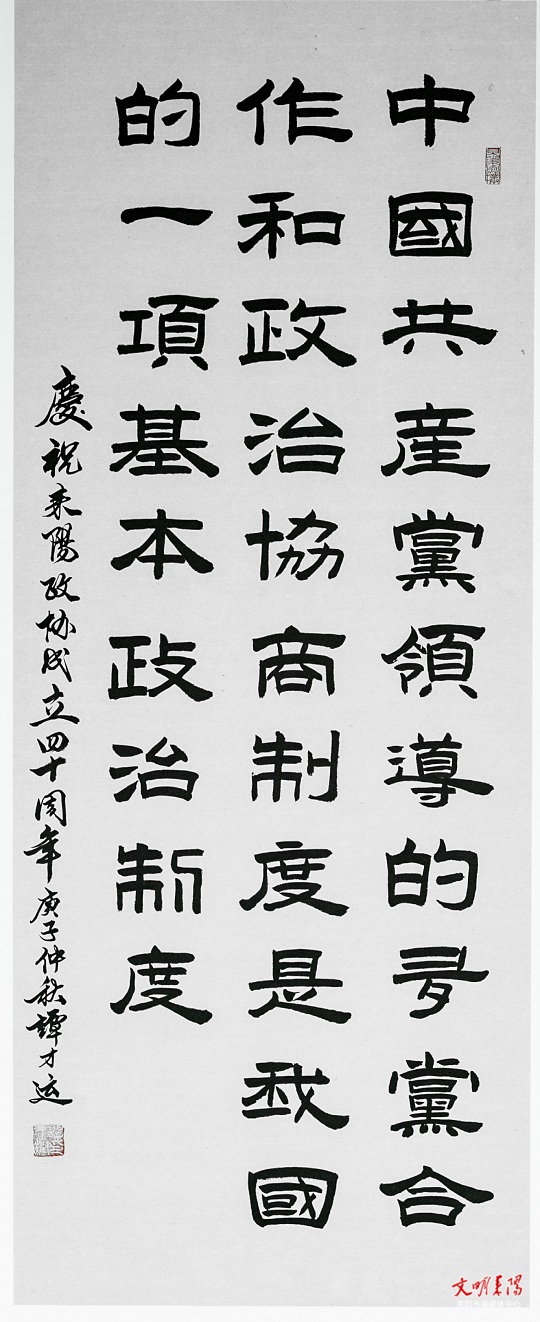 中國共産黨領導的多黨合
作和政治協商制度是我國
的一項基本政治制度
慶祝耒陽政协成立四十周年庚子仲秋譚才運
文明耒陽